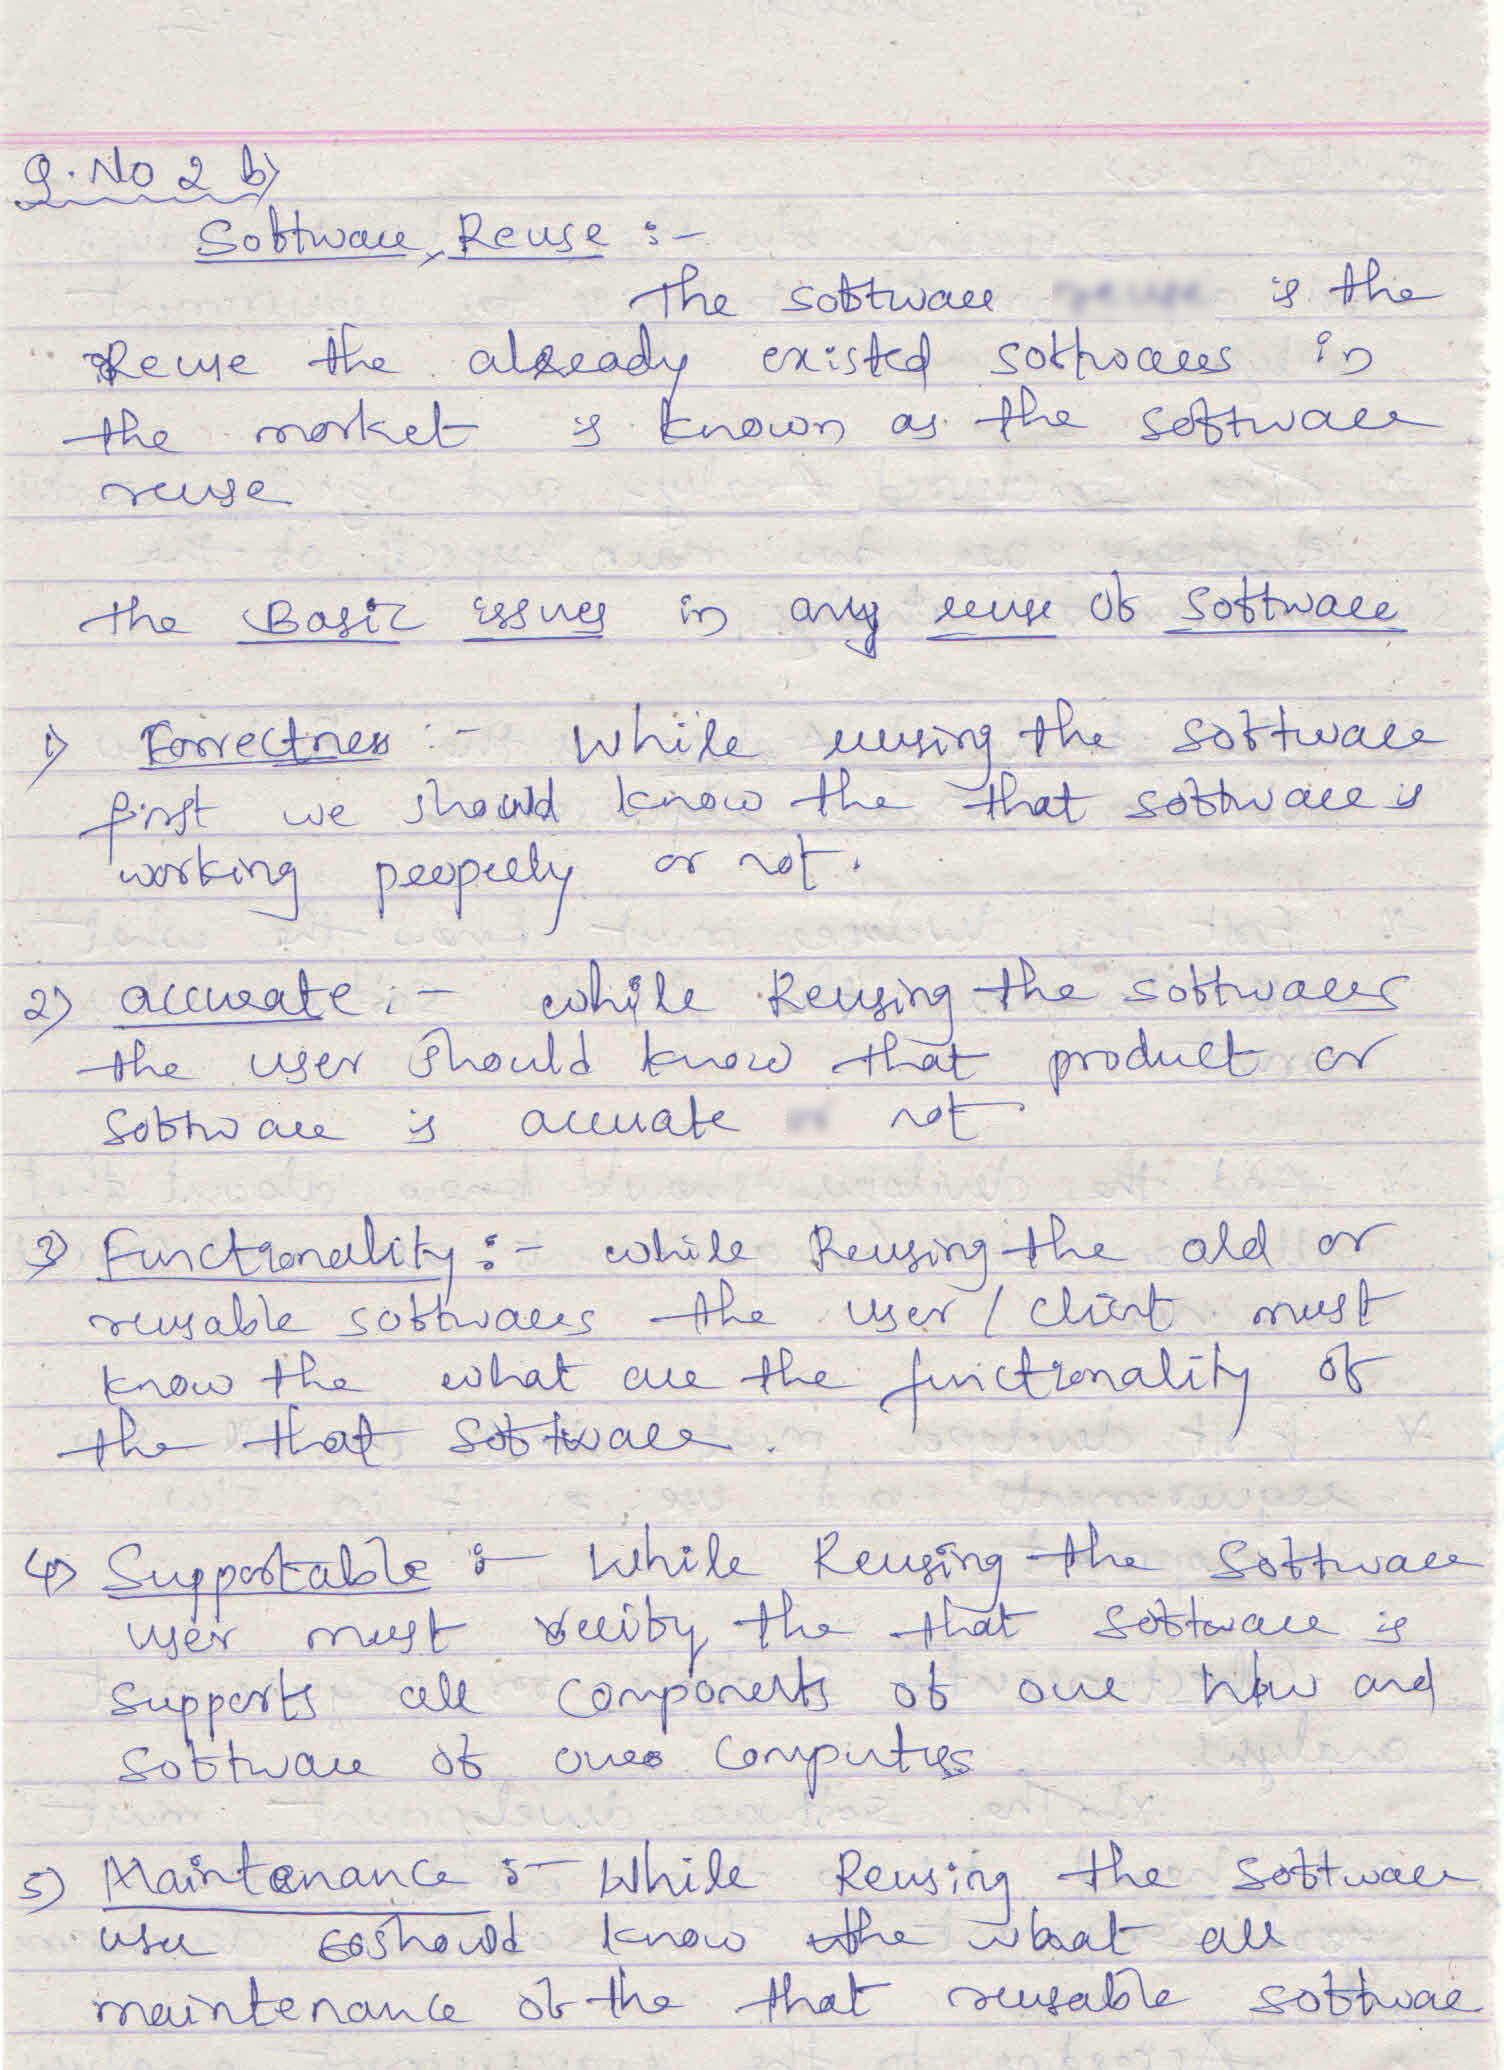 Q. No 2 b)
Software Reuse :-
The software is the
Reuse the already existed softwares in
the market is known as the software
reuse
the Basic issues in any reuse of software
1) Correctness :- While reusing the software
first we should know the that software is
working properly or not.
2) accurate :- while Reusing the softwares
the user should know that product or
software is accurate not
3) Functionality :- while Reusing the old or
reusable softwares the user / client must
know the what are the functionality of
the that software.
4) Supportable :- While Reusing the software
user must verify the that software is
supports all components of our h/w and
software of our computers
5) Maintenance :- While Reusing the software
user should know the what all
maintenance of the that reusable software